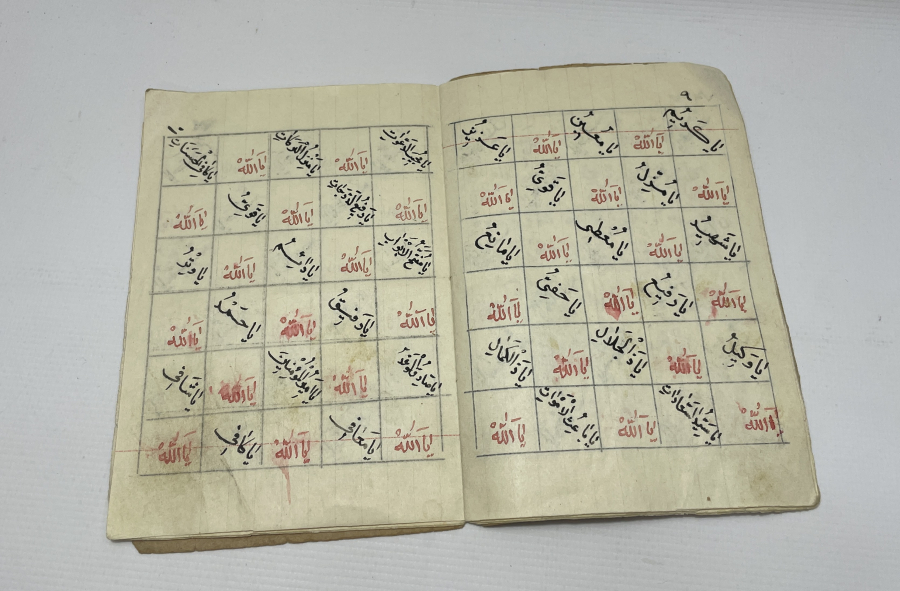 ٩
يا كريم يا اَللّٰهْ يا معين يا اَللّٰهْ يا عزيز
يا اَللّٰهْ يا مُنزل يا اَللّٰهْ يا قوىُّ يا اَللّٰهْ
يا شهيد يا اَللّٰهْ يا مُعطى يا اَللّٰهْ يا مانع
يا اَللّٰهْ يا رفيع يا اَللّٰهْ يا حفىُّ يا اَللّٰهْ
يا وكيل يا اَللّٰهْ يا ذَالجلال يا اَللّٰهْ يا ذَالكمال
يا اَللّٰهْ يا اَللّٰهْ يا اَللّٰهْ
١٠
يا مجيب الدعوات يا اَللّٰهْ يا منزل البركات يا اَللّٰهْ يا كافى المهمات
يا اَللّٰهْ يا رفيع الدرجات يا اَللّٰهْ يا قوىُّ يا اَللّٰهْ
يا مفتح الابواب يا اَللّٰهْ يا دائم يا اَللّٰهْ يا وترُ
يا اَللّٰهْ يا رفيقُ يا اَللّٰهْ يا اَللّٰهْ
يا صادق الوعد يا اَللّٰهْ يا اَللّٰهْ يا شافى
يا اَللّٰهْ يا معافى يا اَللّٰهْ يا كافى يا اَللّٰهْ